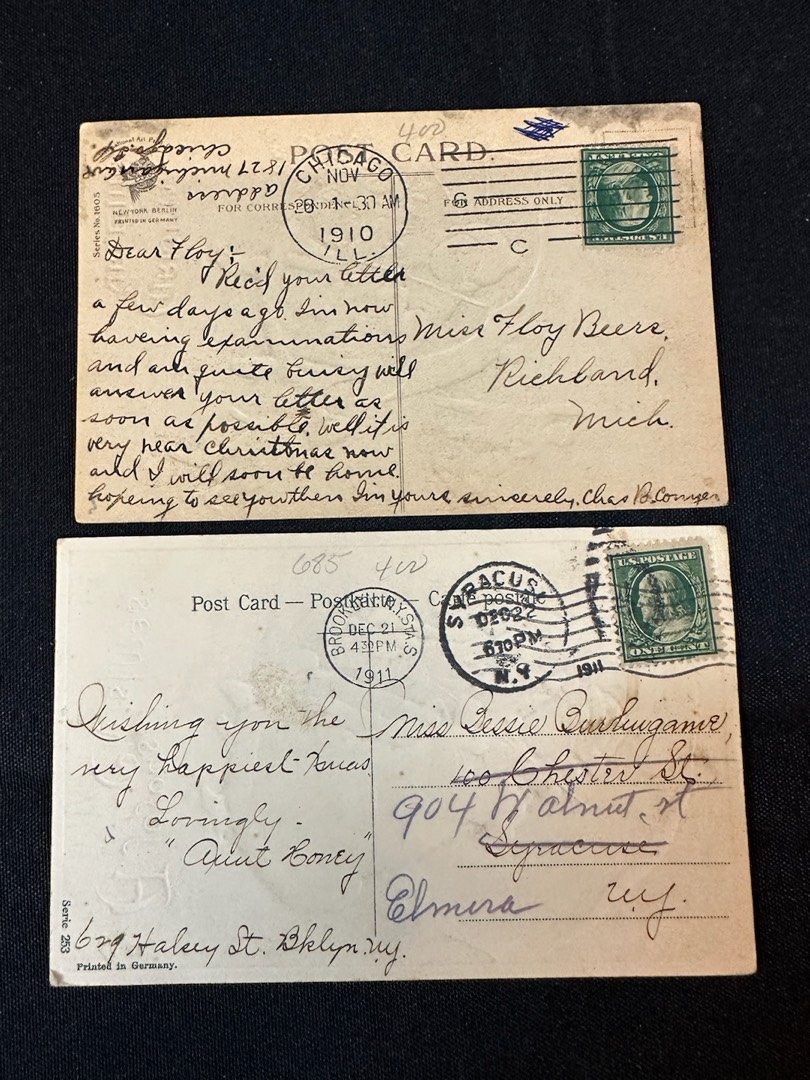 400
POST CARD.
National Art
address
1827 Michigan ave
Chicago. Ill.
NEW YORK BERLIN
PRINTED IN GERMANY
Series No. 1605
FOR CORRESPONDENCE
FOR ADDRESS ONLY
CHICAGO
NOV
28 1-30 AM
1910
ILL.
C
C
U.S. POSTAGE
Dear Floy:-
Rec'd your letter
a few days ago. I'm now
haveing examinations
and am quite buisy will
answer your letter as
soon as possible. Well it is
very near christmas now
and I will soon be home.
hopeing to see you then I'm yours sincerely. Chas B.
Miss Floy Beers.
Richland.
Mich.
685 400
Post Card — Postkarte — Carte postale
BROOKLYN, N.Y. STA. S.
DEC 21
4 30 PM
1911
SYRACUSE
DEC 22
6 30 PM
N.Y.
1911
U.S. POSTAGE
ONE CENT
Wishing you the
very happiest Xmas
Lovingly -
"Aunt Honey"
629 Halsey St. Bklyn. N.Y.
Miss Bessie Burlingame,
100 Chester St.
904 Walnut. st
Syracuse
Elmira N.Y.
Serie 253
Printed in Germany.